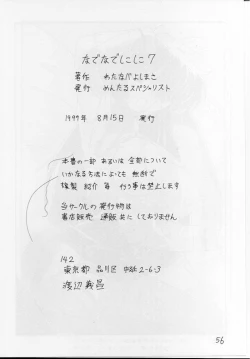 なでなでしこしこ 7
著作 わたなべよしまさ
発行 めんたるスペシャリスト
1997年 8月15日 発行
本書の一部 あるいは 全部について
いかなる方法によっても 無断で
複製 紹介 等 行う事は禁止します
当サークルの 発行物は
書店販売 通販 共に しておりません
142
東京都 品川区 中延2-6-3
渡辺義昌
56